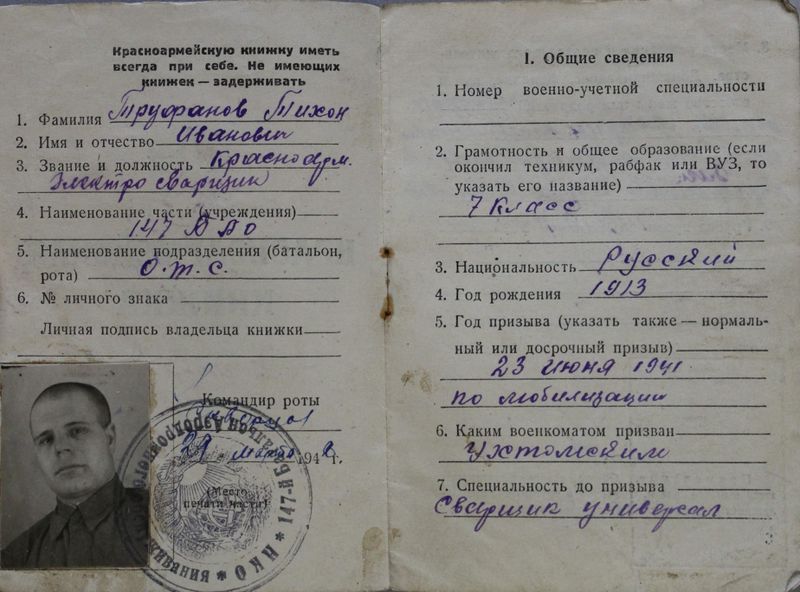 Красноармейскую книжку иметь
всегда при себе. Не имеющих
книжек — задерживать
1. Фамилия Труфанов Тихон
2. Имя и отчество Иванович
3. Звание и должность Красноарм.
Электросварщик
4. Наименование части (учреждения)
147 БАО
5. Наименование подразделения (батальон,
рота) О.Т.С.
6. № личного знака
Личная подпись владельца книжки
Командир роты
29 194 г.
(Место
печати части)
147-й Батальон Аэродромного
живания * НКО *
I. Общие сведения
1. Номер военно-учетной специальности
2. Грамотность и общее образование (если
окончил техникум, рабфак или ВУЗ, то
указать его название)
7 Класс
3. Национальность Русский
4. Год рождения 1913
5. Год призыва (указать также — нормаль-
ный или досрочный призыв)
23 июня 1941
по мобилизации
6. Каким военкоматом призван
Ухтомским
7. Специальность до призыва
Сварщик универсал
3